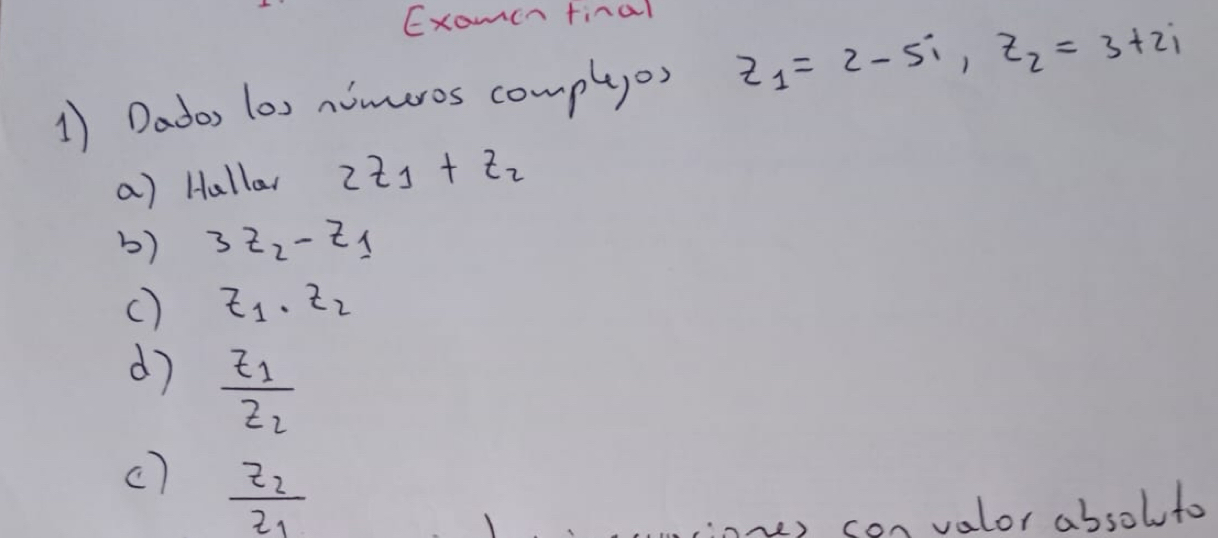 Examen final
1) Dados los números complejos z1 = 2 - 5i, z2 = 3+2i
a) Hallar 2z1 + z2
b) 3z2 - z1
c) z1 . z2
d) z1
z2
e) z2
z1
con valor absoluto